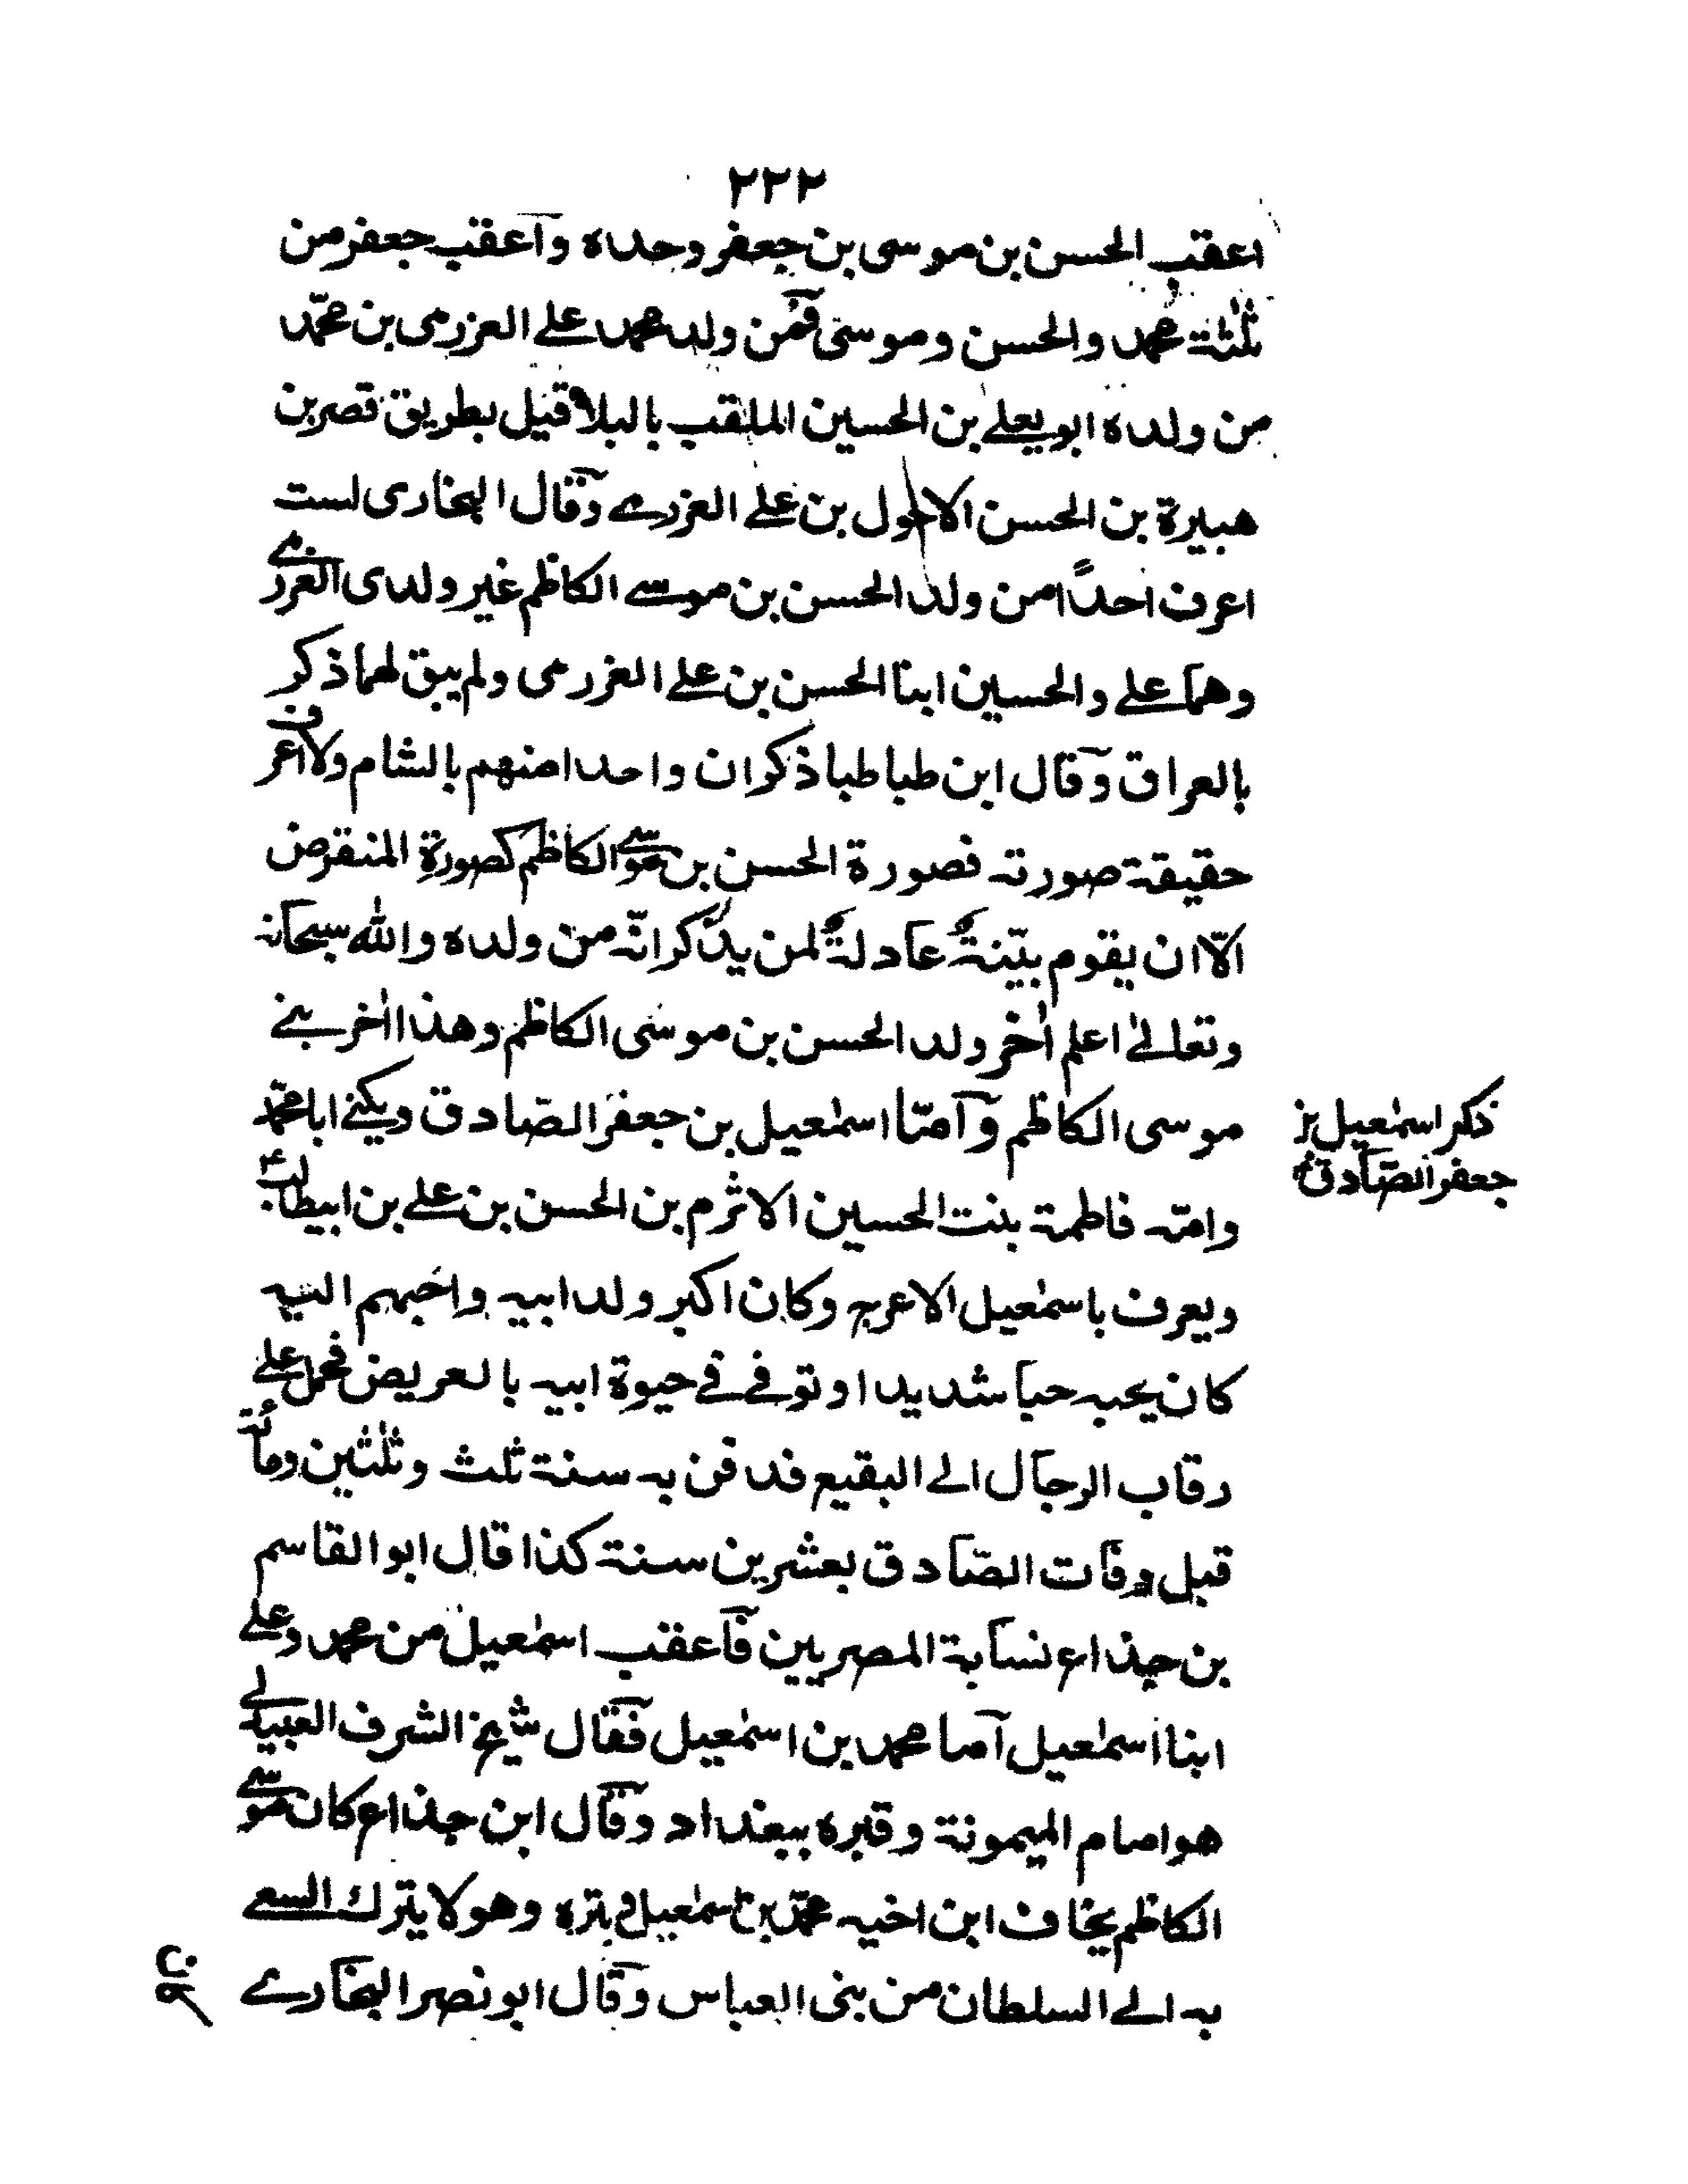 ٢٢٢
اعقب الحسن بن موسى بن جعفر وحده وآعقب جعفر من
ثلٰثة محمد والحسن وموسى فمن ولد محمد علے العزرمى بن محمّد
من ولده ابو يعلے بن الحسين الملقب بالبلا قيل بطريق قصر بن
هبيرة بن الحسن الاحول بن علے العزرمے وقال البخارى لست
اعرف احدًا من ولد الحسن بن موسے الكاظم غير ولدى العزرمے
وهما علے والحسين ابنا الحسن بن علے العزرمى ولم يبق لهما ذكر
بالعراق وقال ابن طباطبا ذكر ان واحدا منهم بالشام ولا اعرف
حقيقة صورته فصورة الحسن بن موسے الكاظم كصورة المنقرض
الّا ان يقوم بيّنةٌ عادلةٌ لمن يذكر انّه من ولده والله سبحانه
وتعالےٰ اعلم اٰخر ولد الحسن بن موسى الكاظم وهذا اٰخر بنے
موسى الكاظم وآمّا اسمٰعيل بن جعفر الصّادق ويكنے ابا محمّد
وامّه فاطمة بنت الحسين الاثرم بن الحسن بن علے بن ابيطالب ؏
ويعرف باسمٰعيل الاعرج وكان اكبر ولد ابيه واحبهم اليه
كان يحبه حبا شديدا وتوفے فے حيوة ابيه بالعريض فحمل علے
رقاب الرجال الے البقيع فدفن به سنة ثلث وثلٰثين ومائة
قبل وفات الصّادق بعشرين سنة كذا قال ابو القاسم
بن جذاع نسابة المصريين فآعقب اسمٰعيل من محمد وعلے
ابنا اسمٰعيل آما محمد بن اسمٰعيل فقال شيخ الشرف العبيدلے
هو امام الميمونة وقبره ببغداد وقال ابن جذاع كان موسے
الكاظم يخاف ابن اخيه محمّد بن اسمٰعيل و يتره وهو لا يترك السعے
به الے السلطان من بنى العباس وقال ابو نصر البخارے
ذكر اسمٰعيل بن
جعفر الصّادق ؏